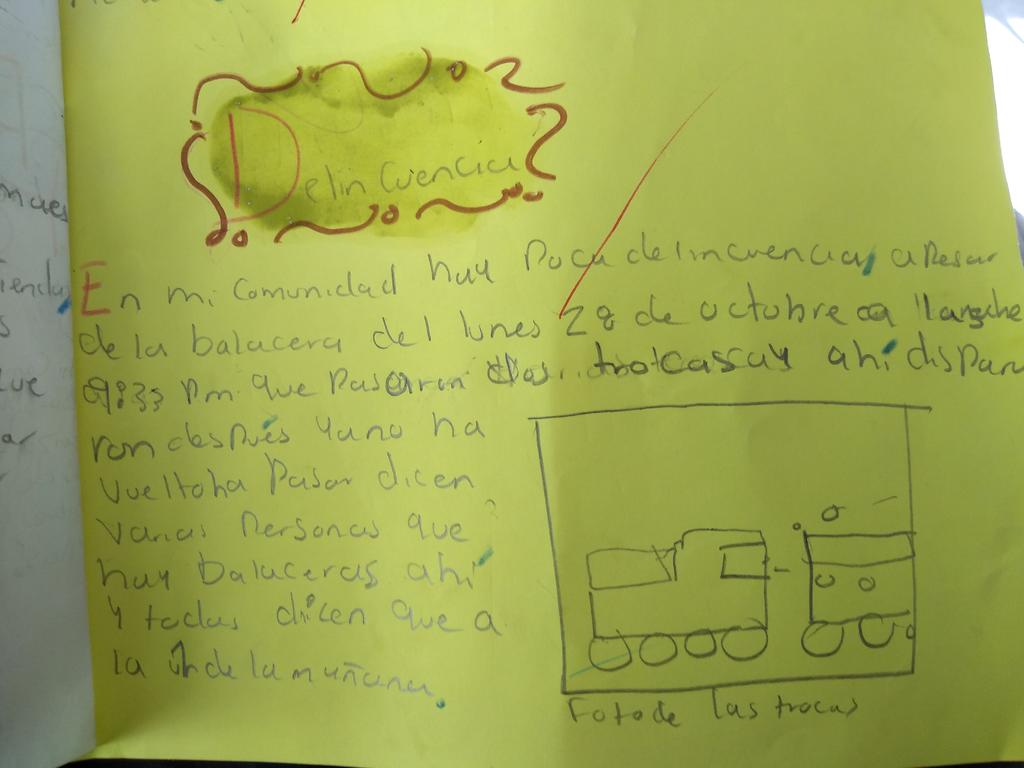 Delincuencia
En mi comunidad hay Poca delincuencia, apesar
de la balacera del lunes 28 de octubre a
Pm que Pasaron dos trocas ay ahí dispara
ron después ya no ha
vueltoha Pasar dicen
varias Personas que
hay balaceras ahí
y todas dicen que a
la 1 de la mañana.
Foto de las trocas